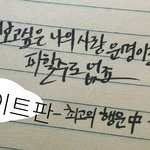 보고싶은 나의 사랑 운명이
피할수도 없죠
이트판-
최고의 행운 中